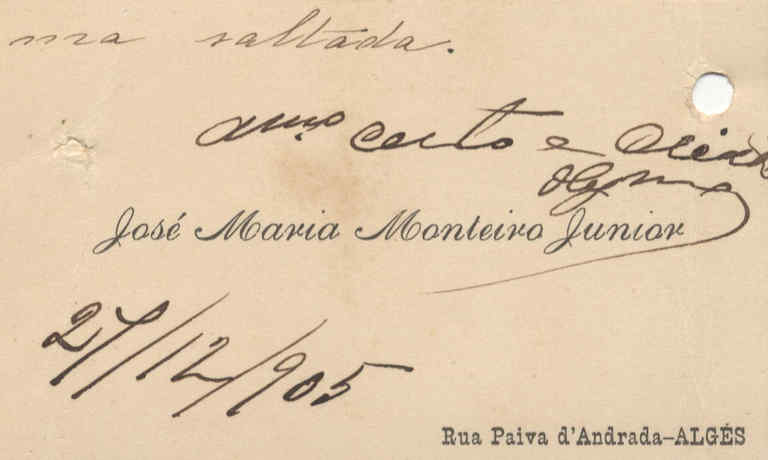 ma saltada.
Am.º certo e
José Maria Monteiro Junior
27/12/905
Rua Paiva d'Andrada-ALGÉS